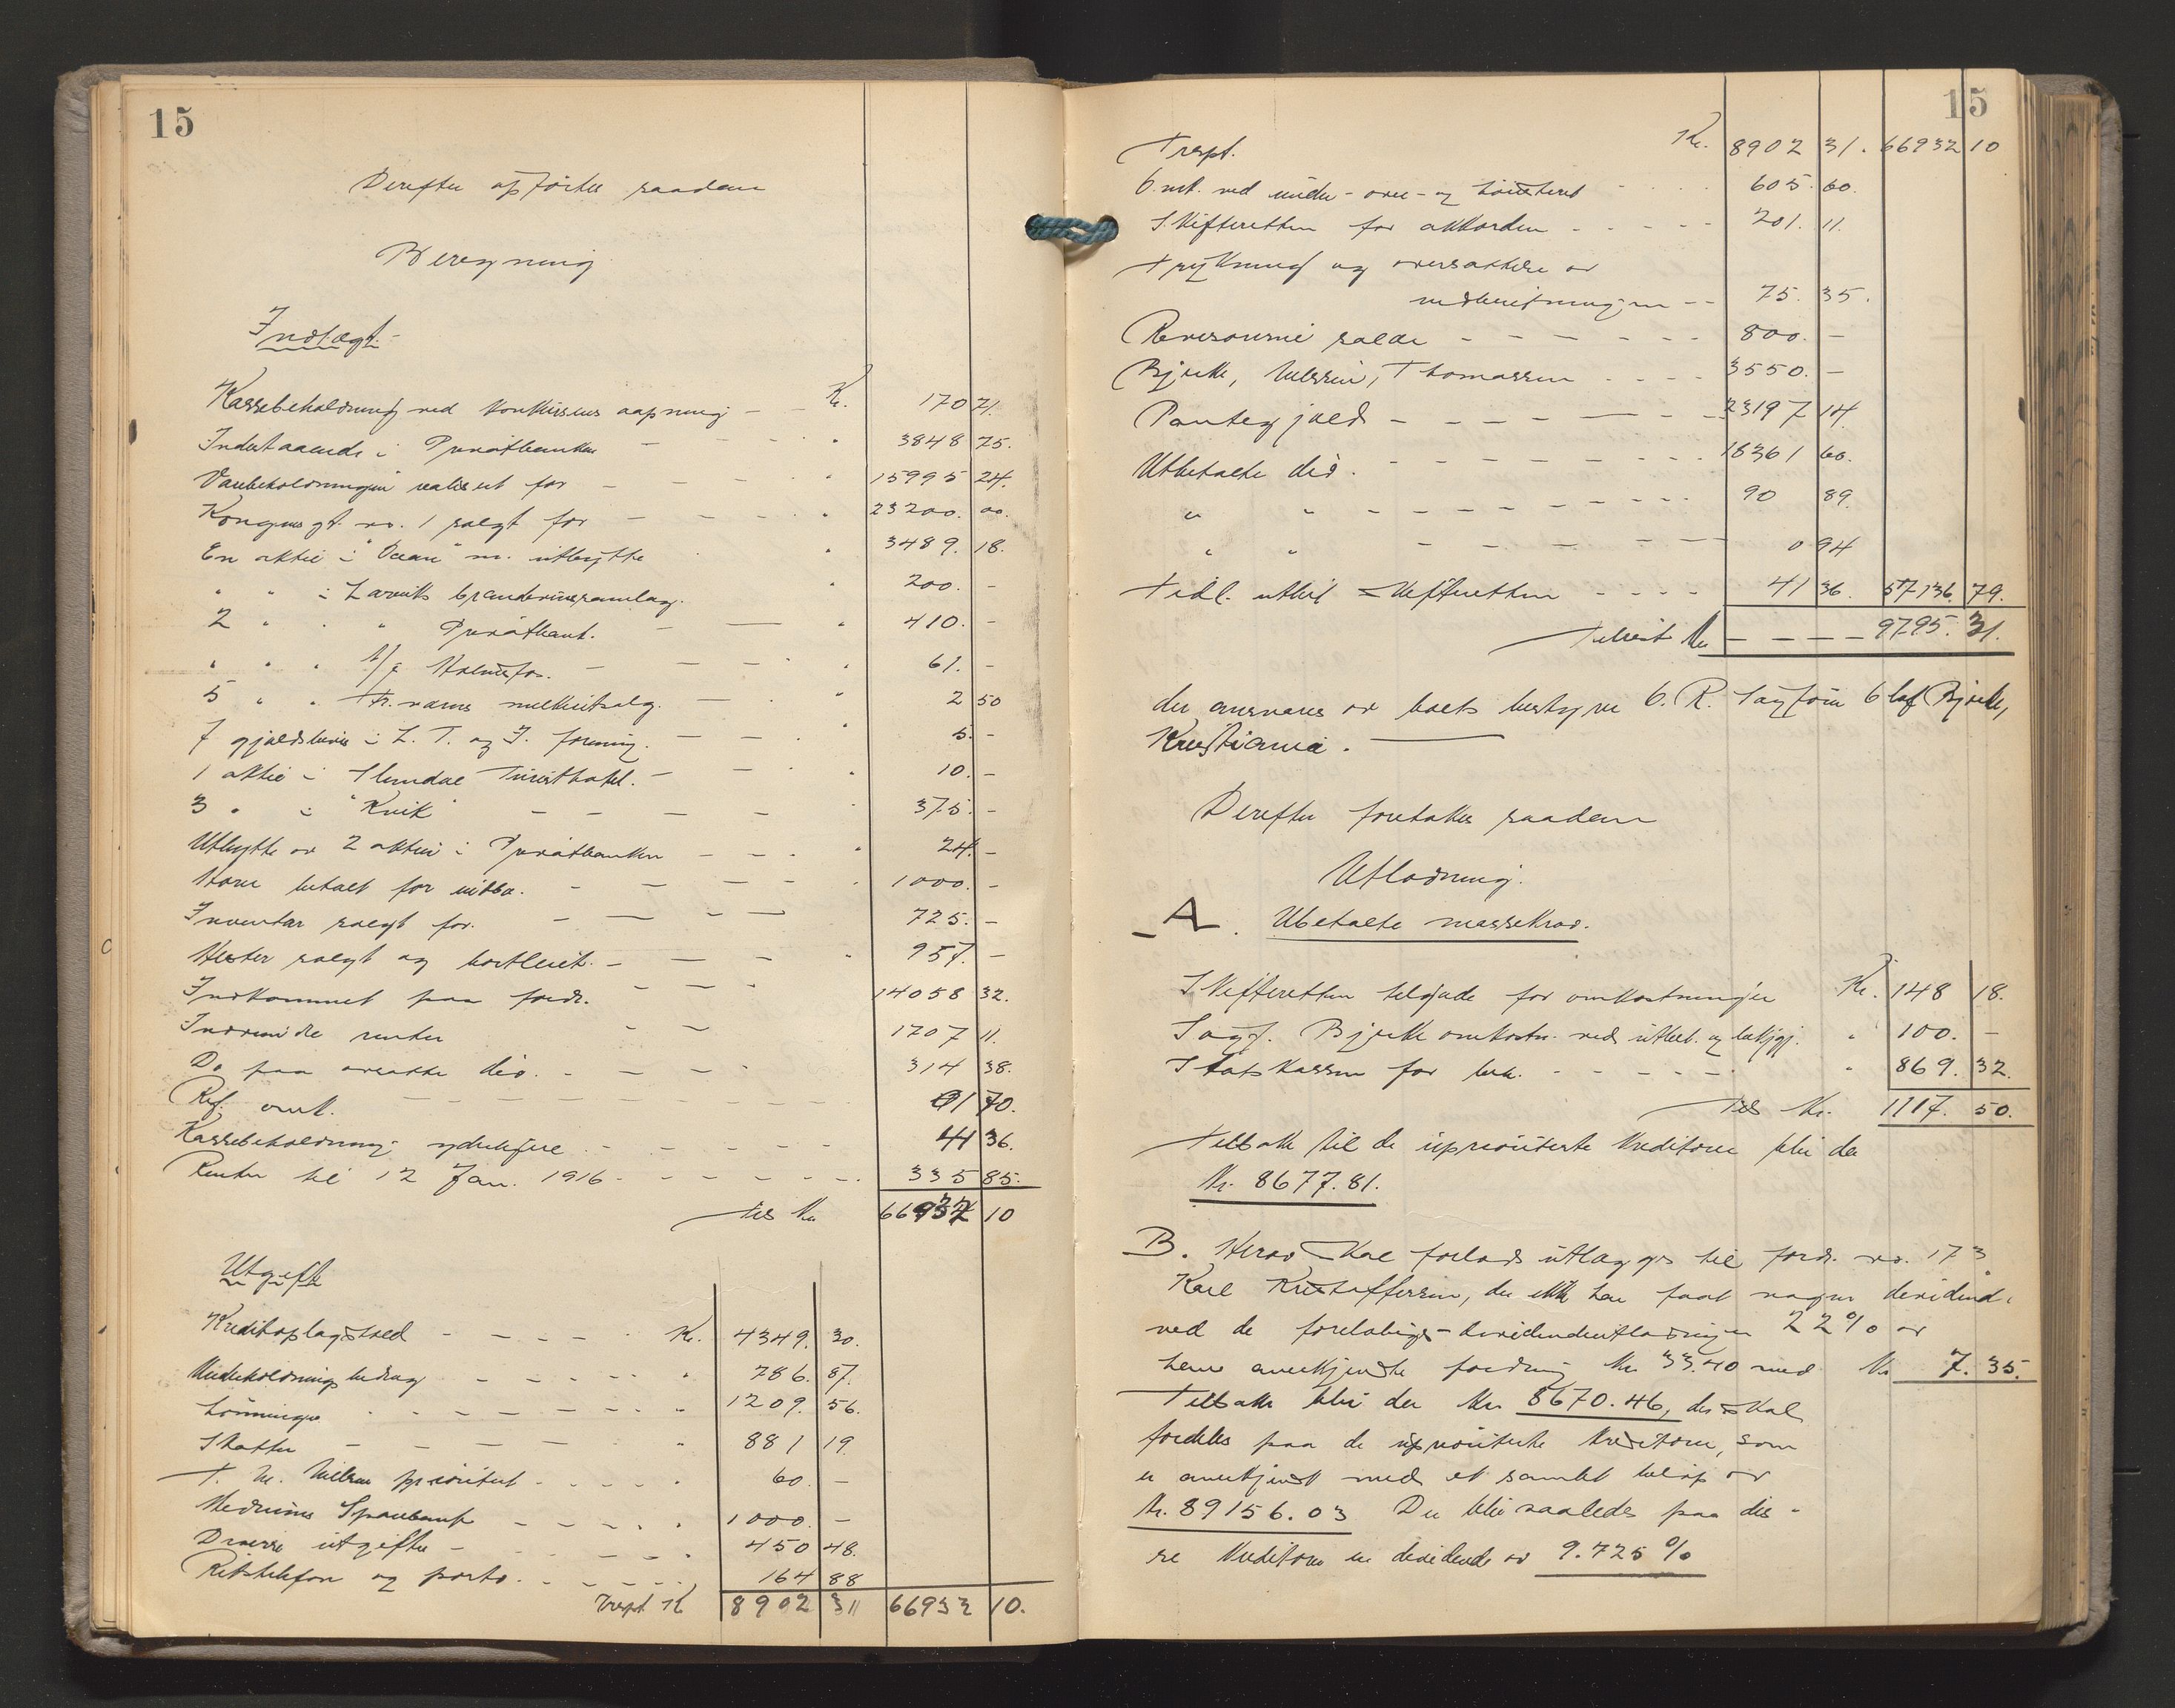 15
Derefter opførtes saadan
Beregning
Indtægt.
Kassebeholdning ved konkursens aapning — Kr. 170 71.
Indestaaende i Privatbanken — " 3848 75.
Varebeholdningen realisert for — " 15995 24.
Kongensgt. no. 1 solgt for — " 23200. 00.
En aktie i "Ocean" m. utbytte " 3489. 18.
" " i Larviks brændevinssamlag. " 200. -
2 " " " Privatbank. — " 410. -
" " " A/S Holmsfos. — " 61. -
5 " " melkeutsalg. — " 2 50
7 gjældsbreve i L. T. og I. forening. — " 5. -
1 aktie i Turisthotel. — " 10. -
3 " i "Kvik" — " 375. -
Utbytte av 2 aktier i Privatbanken — " 24. -
betalt for indbo. — " 1000. -
Inventar solgt for. — 725. -
Hester solgt og bortleiet. — " 957. -
Indkommet paa fordr. — 14058 32.
Indvundne renter — 1707 11.
Do paa avsatte div. — 314 38.
Ref. omk. — 91 70.
Kassebeholdning yderligere — 41 36.
Renter til 12 Jan. 1916 — 335 85.
Tils Kr 66932 10
Utgift
Kreditoplagstold — Kr. 4349. 30.
Underholdningsbidrag — " 786. 87.
Lønninger — " 1209. 56.
Skatter — " 881 19.
T. M. Nielsen prioritet — " 60. -
Hedrums Sparebank — " 1000. -
Diverse utgifter — " 450 48.
Rikstelefon og porto. — 164 88
Trspt. K 8902 31 66932 10.
15
Trspt. Kr. 8902 31. 66932 10
Omk. ved under- over- og høiesteret — 605. 60.
Skifteretten for akkorden — 201. 11.
Trykning og oversættelse av
indberetningen — 75. 35.
Revisorerne salær — 800. -
Bjerke, Nielsen, Thomassen — 3550. -
Pantegjæld — 23197 14.
Utbetalte div. — 18361 60.
" " — 90 89.
" " — 0 94
Tidl. utbet. Skifteretten — 41 36. 57136. 79.
Tilrest Kr — 9795. 31.
der ansvares av boets bestyrer O. R. Sagfører Olaf Bjerke,
Kristiania.
Derefter foretokes saadan
Utlodning.
A. Ubetalte massekrav.
Skifteretten tilgode for omkostninger Kr. 148 18.
Sagf. Bjerke omkostn. ved utbet. og bekjgj. " 100. -
Statskassen for beh. — " 869. 32.
Tils Kr. 1117. 50.
Tilbake til de uprioriterte kreditorer blir da
Kr. 8677.81.
B. Herav skal forlods utlægges til fordr. no. 173
Karl Kristoffersen, der ikke har faat nogen dividende
ved de foreløbige dividendeutlodninger 22% av
hans anerkjendte fordring Kr 33.40 med Kr 7. 35.
Tilbake blir der Kr 8670.46, der skal
fordeles paa de uprioriterte kreditorer, som
er anerkjendt med et samlet beløp av
Kr. 89156.03 Der blir saaledes paa dis-
se kreditorer en dividende av 9.725 %